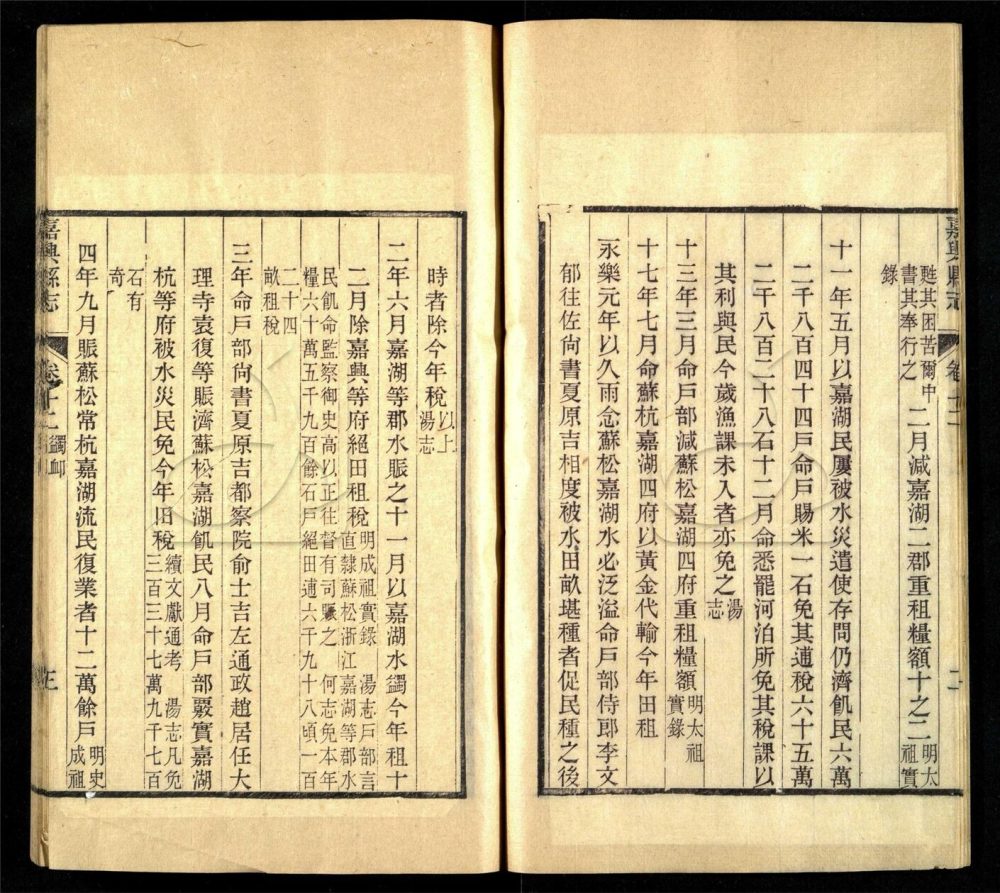 嘉興縣志
卷十一
二
甦其困苦爾中
書其奉行之
錄
二月減嘉湖二郡重租糧額十之二
明太
祖實
十一年五月以嘉湖民屢被水災遣使存問仍濟飢民六萬
二千八百四十四戶命戶賜米一石免其逋稅六十五萬
二千八百二十八石十二月命悉罷河泊所免其稅課以
其利與民今歲漁課未入者亦免之
湯
志
十三年三月命戶部減蘇松嘉湖四府重租糧額
明太祖
實錄
十七年七月命蘇杭嘉湖四府以黃金代輸今年田租
永樂元年以久雨念蘇松嘉湖水必泛溢命戶部侍郎李文
郁往佐尙書夏原吉相度被水田畝堪種者促民種之後
時者除今年稅
以上
湯志
二年六月嘉湖等郡水賑之十一月以嘉湖水蠲今年租十
二月除嘉興等府絕田租稅
明成祖實錄 湯志戶部言
直隸蘇松浙江嘉湖等郡水
民飢命監察御史高以正往督有司賑之 何志免本年
糧六十萬五千九百餘石戶絕田逋六千九十八頃一百
二十四
畝租稅
三年命戶部尙書夏原吉都察院俞士吉左通政趙居任大
理寺袁復等賑濟蘇松嘉湖飢民八月命戶部覈實嘉湖
杭等府被水災民免今年旧稅
續文獻通考 湯志凡免
三百三十七萬九千七百
石有
奇
四年九月賑蘇松常杭嘉湖流民復業者十二萬餘戶
明史
成祖
嘉興縣志
卷十一
蠲卹
三